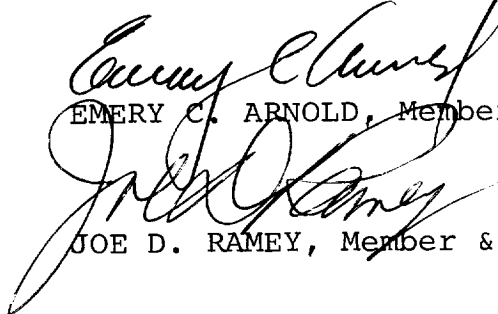 Emery C Arnold
EMERY C. ARNOLD, Member
Joe D Ramey
JOE D. RAMEY, Member &